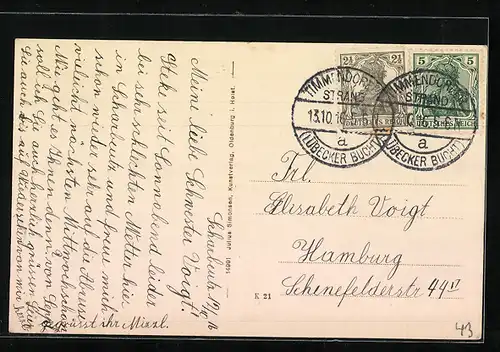 Scharbeutz 12/10 16
Meine liebe Schwester Voigt!
Stecke seit Sonnabend leider
bei sehr schlechtem Wetter hier
in Scharbeutz und freue mich
schon wieder sehr auf die Abreise
vielleicht nächsten Mittwoch
Wie geht es Ihnen denn? Von
soll ich Sie auch herzlich grüssen
Sie auch bis auf Wiedersehn von mir herzl.
gegrüsst ihr
Julius Simonsen, Kunstverlag, Oldenburg i. Holst.
K 21
TIMMENDORFER
STRAND
13.10.16
a
(LÜBECKER BUCHT)
TIMMENDORFER
STRAND
a
(LÜBECKER BUCHT)
2½ 2½
DEUTSCHES REICH
5 5
DEUTSCHES REICH
Frl.
Elisabeth Voigt
Hamburg
Schenefelderstr 44 IV
43